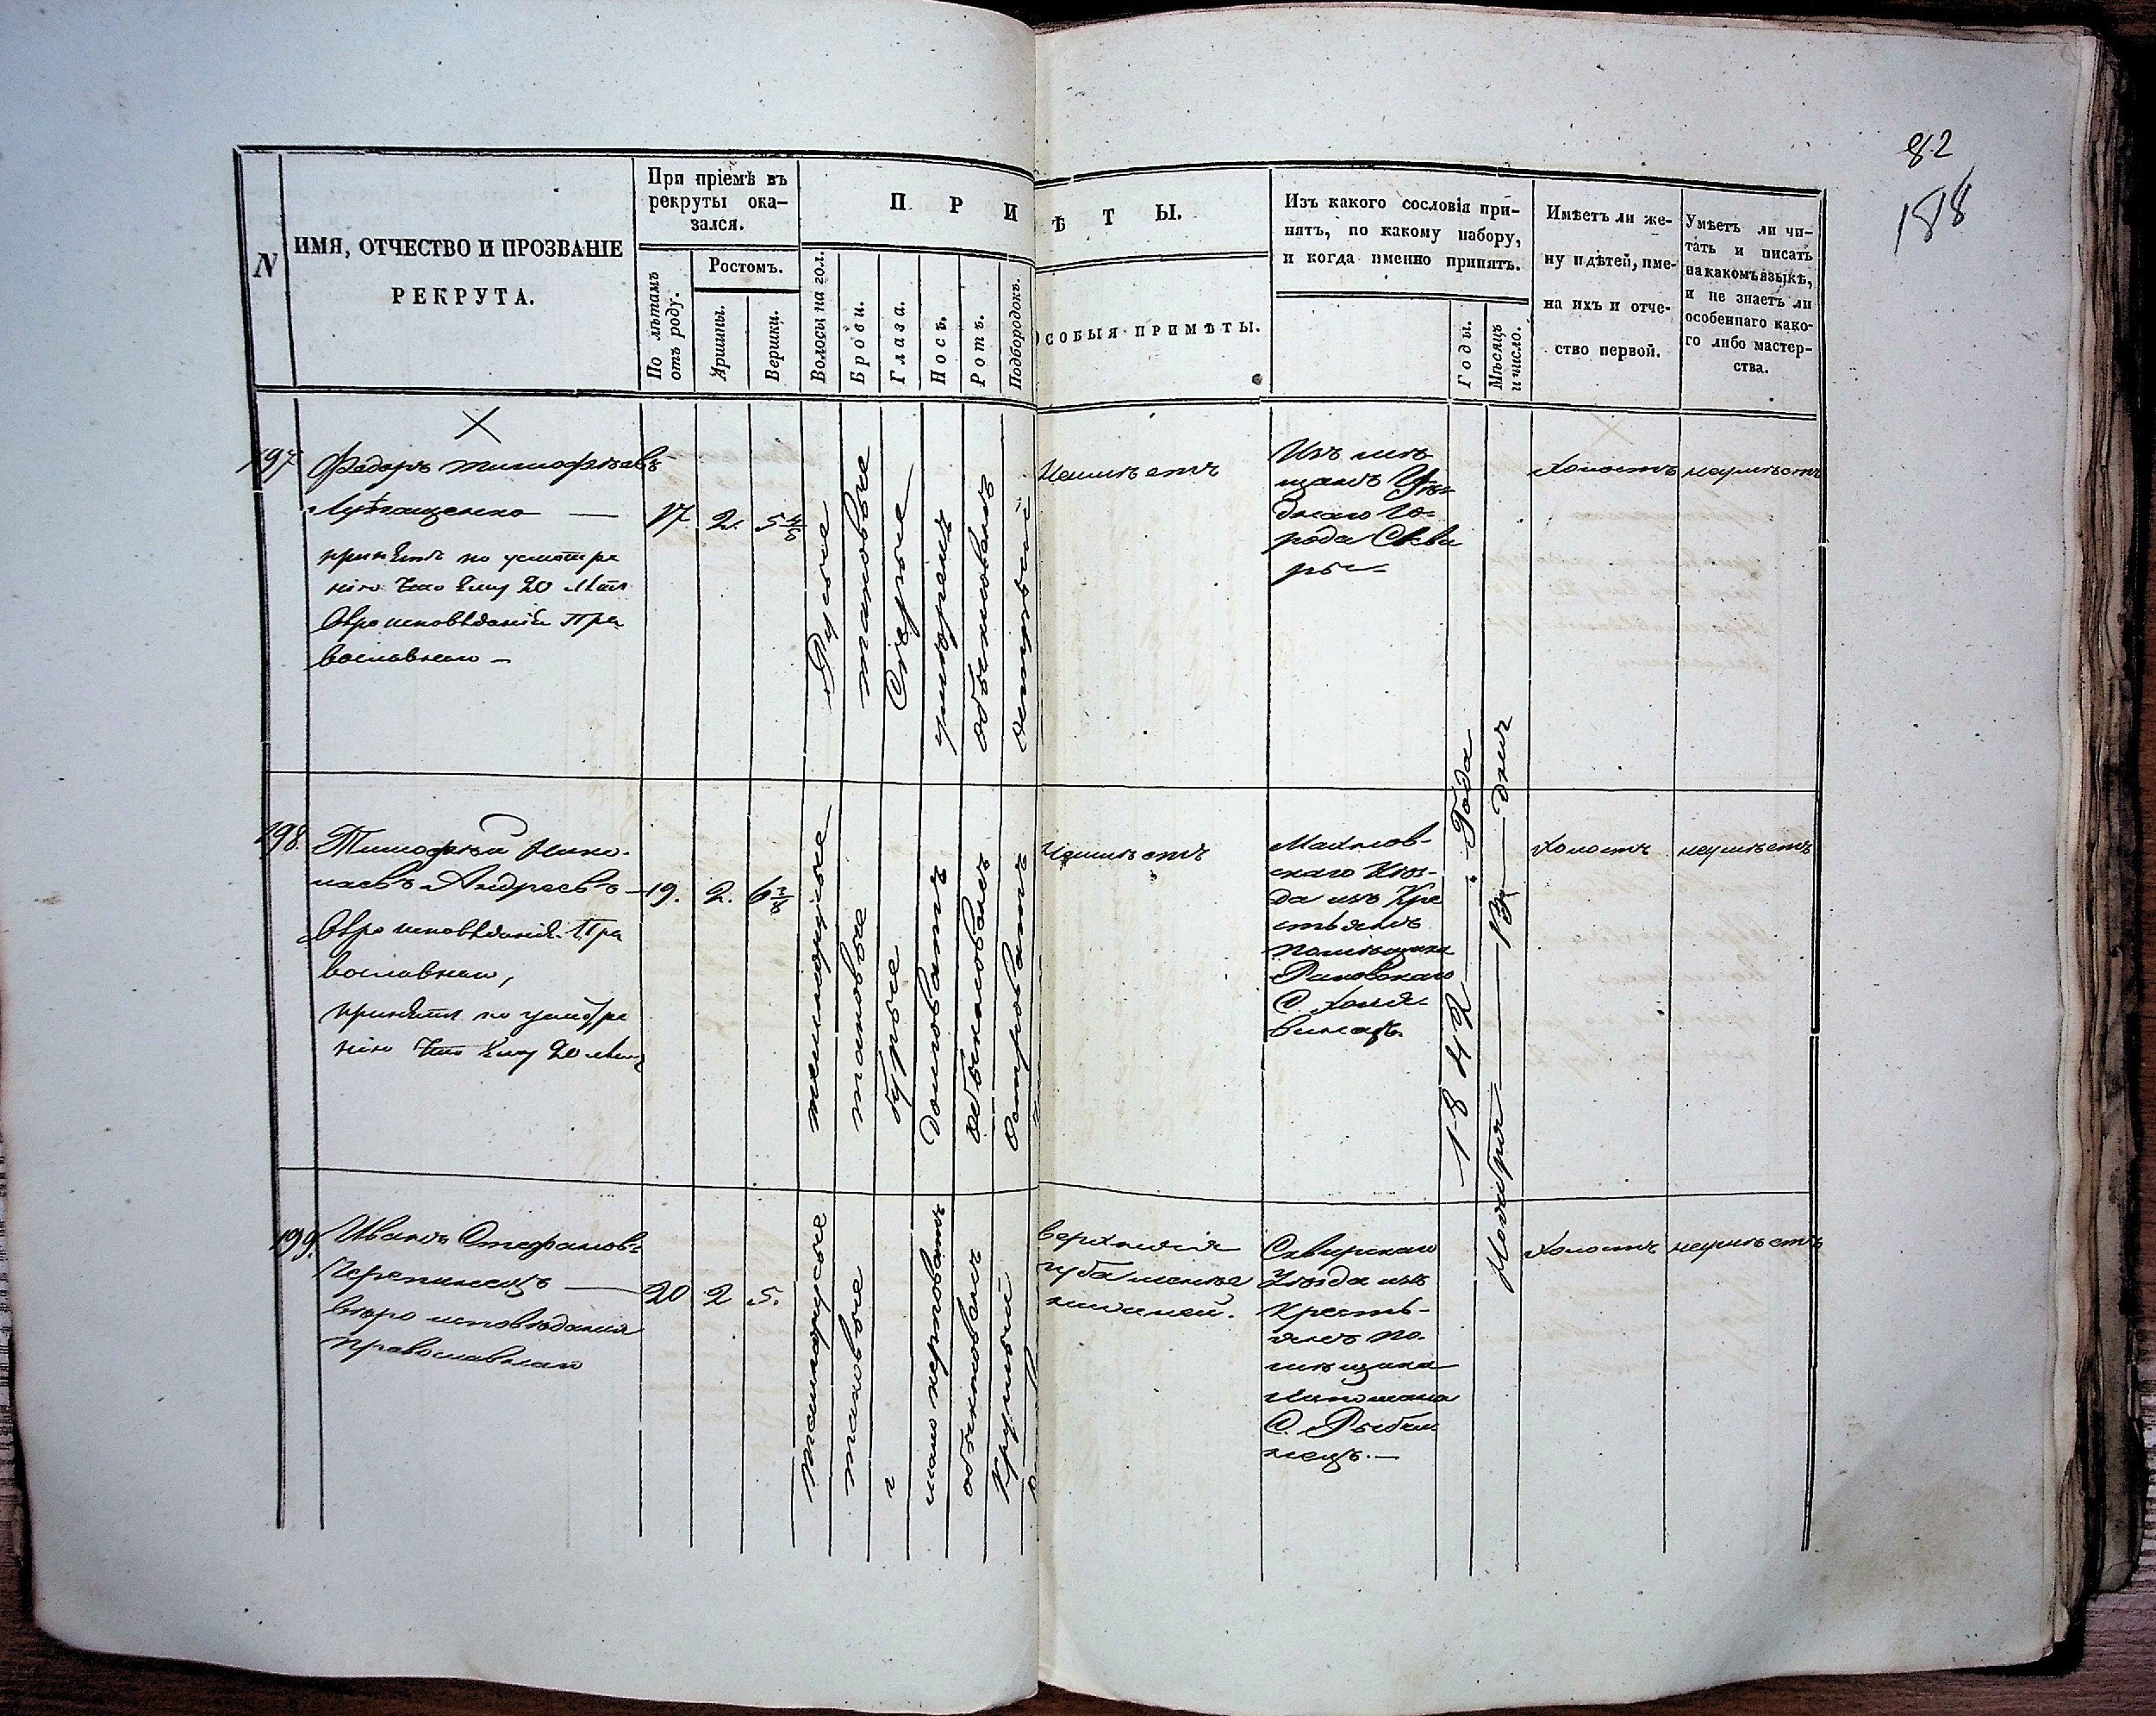 82
188
N
ИМЯ, ОТЧЕСТВО И ПРОЗВАНІЕ
РЕКРУТА.
При пріемѣ въ
рекруты ока-
зался.
По лѣтамъ
отъ роду.
Ростомъ.
Аршины.
Вершки.
П Р И
Ѣ Т Ы.
Волосы на гол.
Брови.
Глаза.
Носъ.
Ротъ.
Подбородокъ.
ОСОБЫЯ ПРИМѢТЫ.
Изъ какого сословія при-
нятъ, по какому набору,
и когда именно принятъ.
Годы.
Мѣсяцъ
и число.
Имѣетъ ли же-
ну и дѣтей, име-
на ихъ и отче-
ство первой.
Умѣетъ ли чи-
тать и писать
на какомъ языкѣ,
и не знаетъ ли
особеннаго како-
го либо мастер-
ства.
197
Федоръ Тимофѣевъ
принятъ по усмотре
нію что ему 20 лѣтъ
Вѣроисповѣданія Пра
вославнаго —
17. 2. 5 4/8
Русые
таковые
Серые
умѣренъ
обыкновенъ
Неимѣетъ
Изъ мѣ
щанъ Уѣз
днаго Го-
рода Скви
ры —
холостъ
неумѣетъ
198.
Тимофей Нико-
лаевъ Андреевъ —
Вѣро исповѣданія Пра
вославнаго,
принятъ по усмотре
нію что ему 20 лѣтъ
19. 2. 6 3/8
темнорусые
таковые
бурые
долговатъ
обыкновенъ
Островатъ
Неимѣетъ
Махнов-
скаго Уѣз-
да изъ Кре
стьянъ
помѣщика
холостъ
неумѣетъ
1842 Года
Ноября 13 дня
199.
Иванъ Стефановъ
Черепинецъ —
вѣро исповѣданія
православнаго
20 2 5.
темнорусые
таковые
обыкновенъ
Круглый
верхняя
губа менѣе
нижней.
Сквирскаго
Уѣзда изъ
крестъ-
янъ по-
мѣщика
С. Рыбчи
нецъ. —
холостъ
неумѣетъ